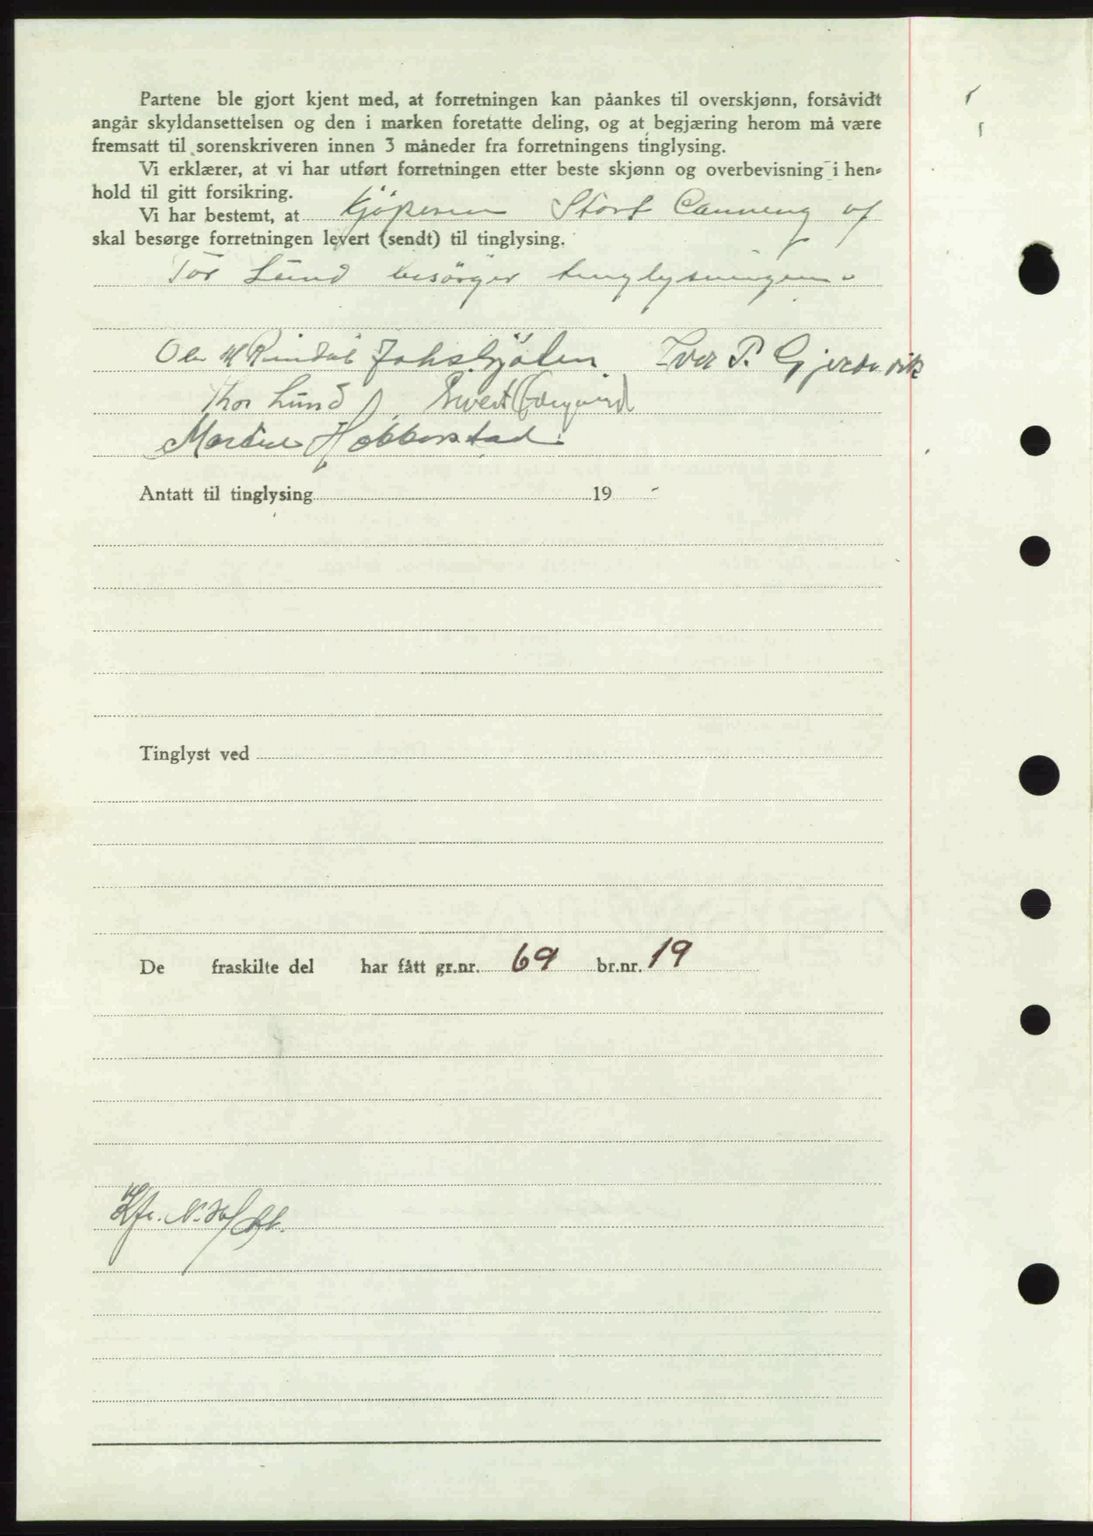 Partene ble gjort kjent med, at forretningen kan påankes til overskjønn, forsåvidt
angår skyldansettelsen og den i marken foretatte deling, og at begjæring herom må være
fremsatt til sorenskriveren innen 3 måneder fra forretningens tinglysing.
Vi erklærer, at vi har utført forretningen etter beste skjønn og overbevisning i hen-
hold til gitt forsikring.
Vi har bestemt, at kjöperen Stort Canneng af
skal besørge forretningen levert (sendt) til tinglysing.
Tor Lund besörger tinglysningen.
Ole M Rindal Iver P. Gjerdevik
Thor Lund Sivert Ødegaard
Martin Hobberstad
Antatt til tinglysing 19
Tinglyst ved
De fraskilte del har fått gr.nr. 69 br.nr. 19